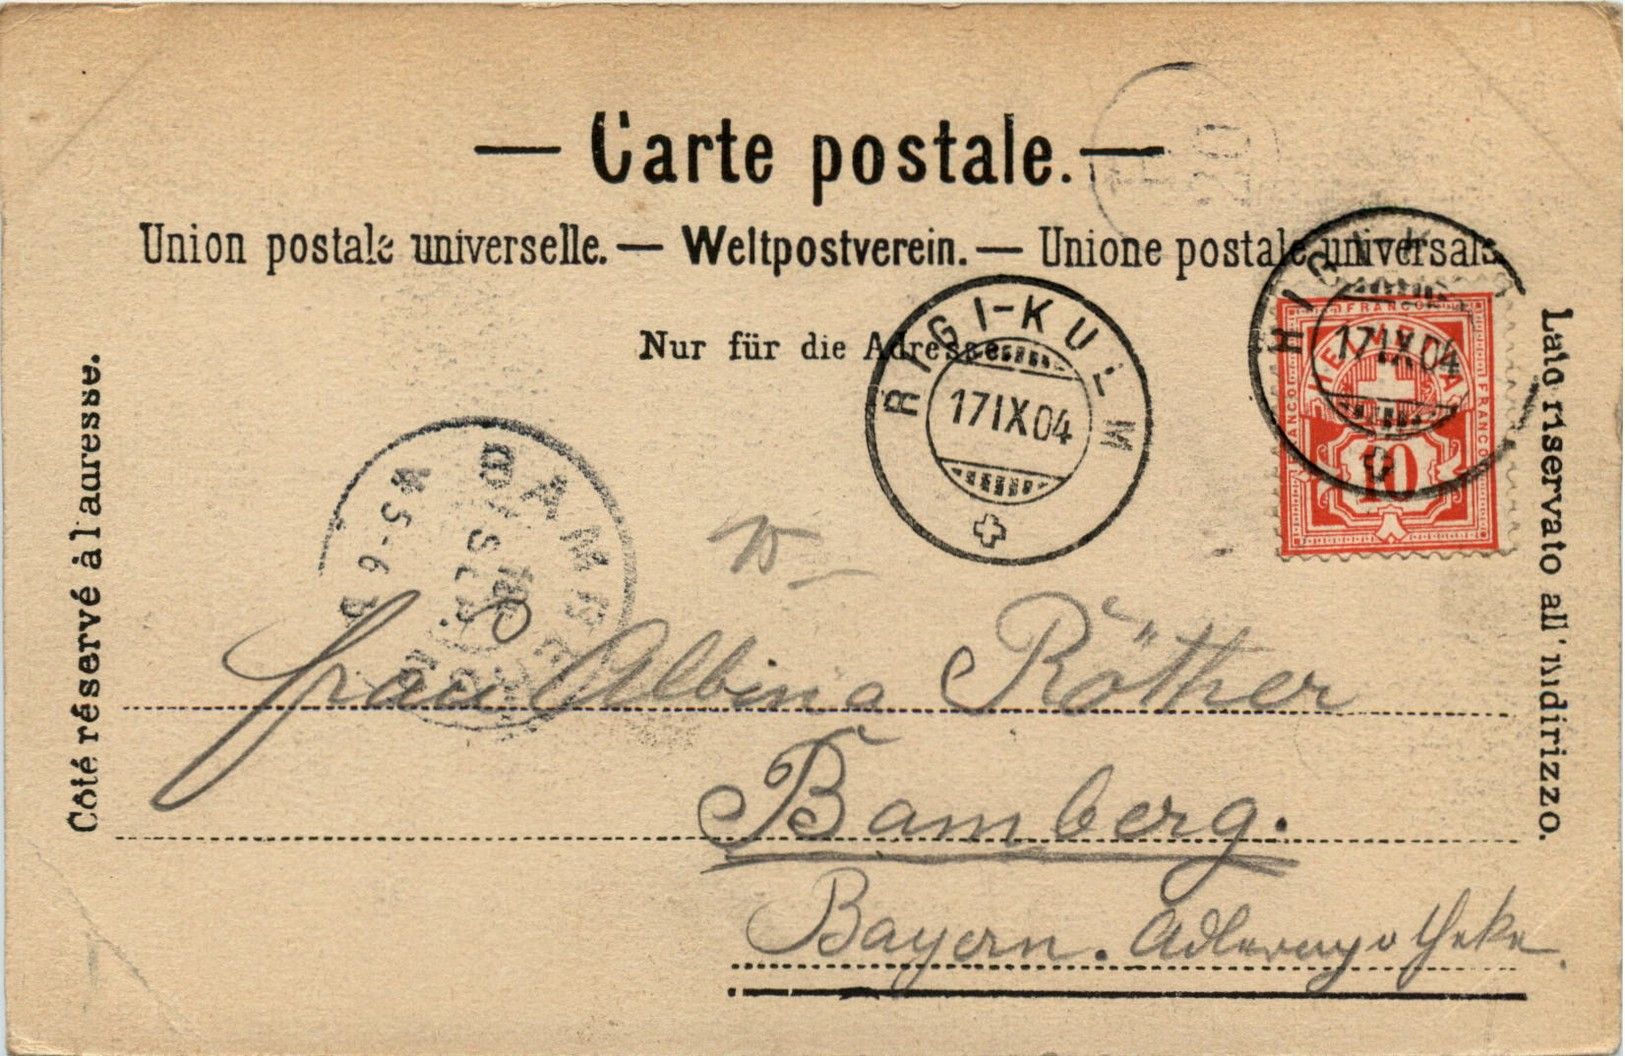 — Carte postale. —
Union postale universelle. — Weltpostverein. — Unione postale universale
Nur für die Adresse.
Côté réservé à l'adresse.
Lato riservato all'indirizzo.
RIGI-KULM
17 IX 04
RIGI-K
17 IX 04
FRANCO
HELVETIA
FRANCO
FRANCO
10
BAMBERG
18
SEP.
5-6
20
Frau Albina Röther
Bamberg.
Bayern. Adlerapotheke.